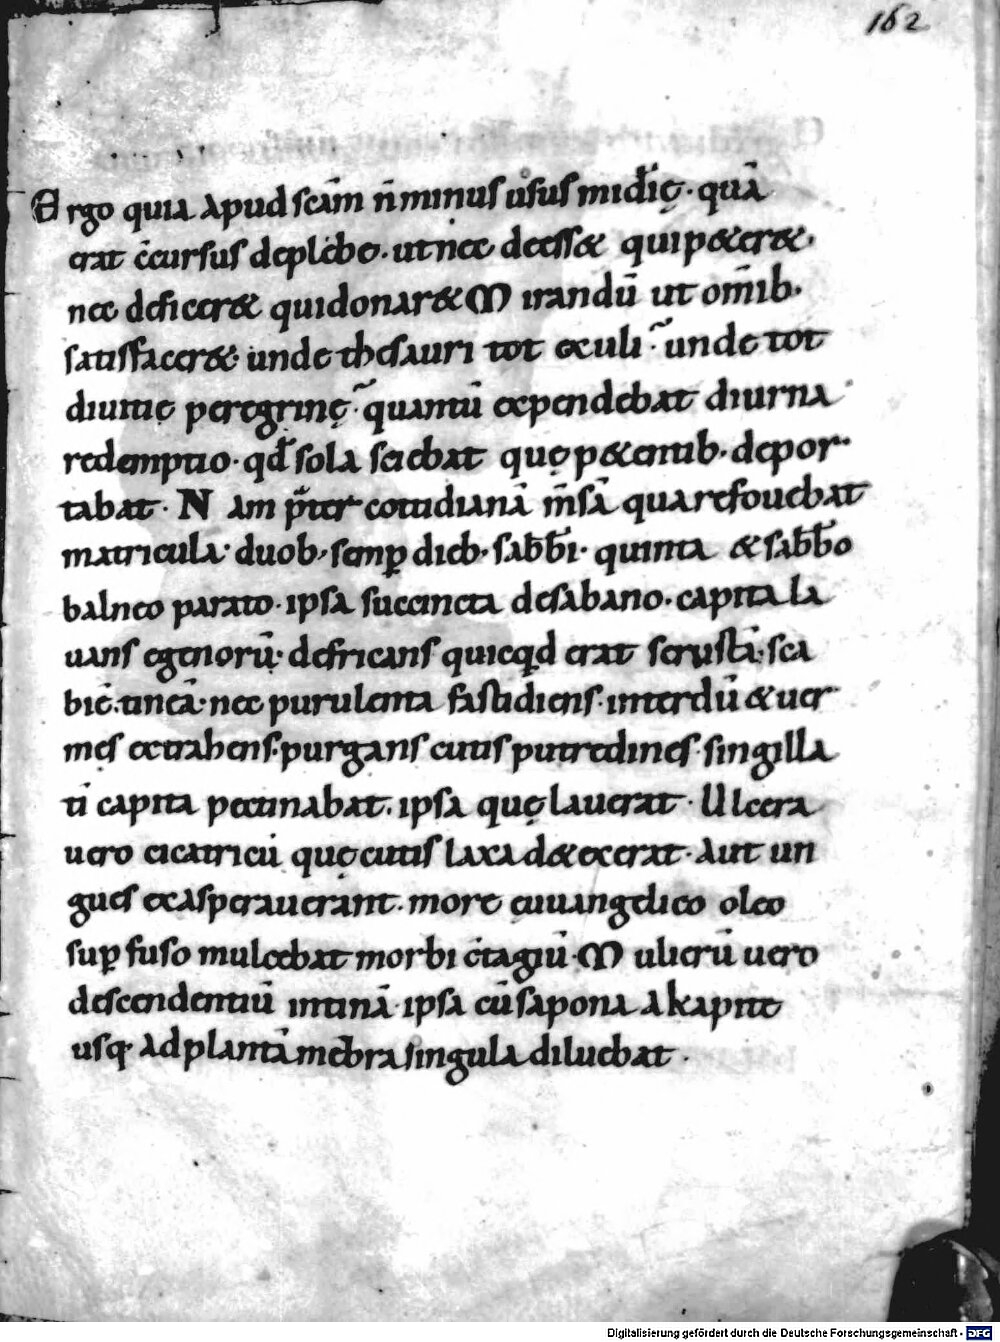 162
Ergo quia apud scām n̄ minus usus mid̄ię · quā
erat c̄cursus deplebe · ut nec deessę& quip&er&·
nec deficer& quidonar& Mirandū ut om̄ib·
satisfacer& · unde thesauri tot exculi · unde tot
diuitię peregrinę · quantū expendebat diurna
redemptio · qd̄ sola sciebat quę p&entib· depor
tabat · Nam p̄ter cottidianā m̄sā qua refouebat
matricula · duob· semp̱ dieb· sabb̄i · quinta & sabb̄o
balneo parato · ipsa succincta desabano · capita la
uans egenorū · defricans quicqd erat scrustā · sca
biē · tineā · nec purulenta fastidiens · interdū & uer
mes extrahens · purgans cutis putredines · singilla
tī capita pectinabat · ipsa quę lauerat · Ulcera
uero cicatricū quę cutis laxa d&exerat · Aut un
gues exasperauerant · more euuangelico oleo
sup̱fuso mulcebat morbi c̄tagiū · Mulierū uero
descendentiū intinā · ipsa cū sapona akapite
usq· adplantā mēbra singula diluebat ·
Digitalisierung gefördert durch die Deutsche Forschungsgemeinschaft - DFG